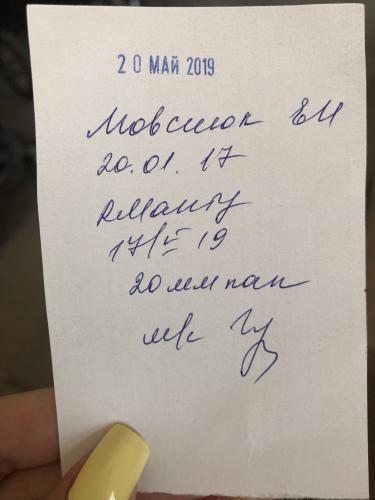 20 МАЙ 2019
Мовсиюк
20.01.17
RМанту
17/V 19
20мм пап
м/с